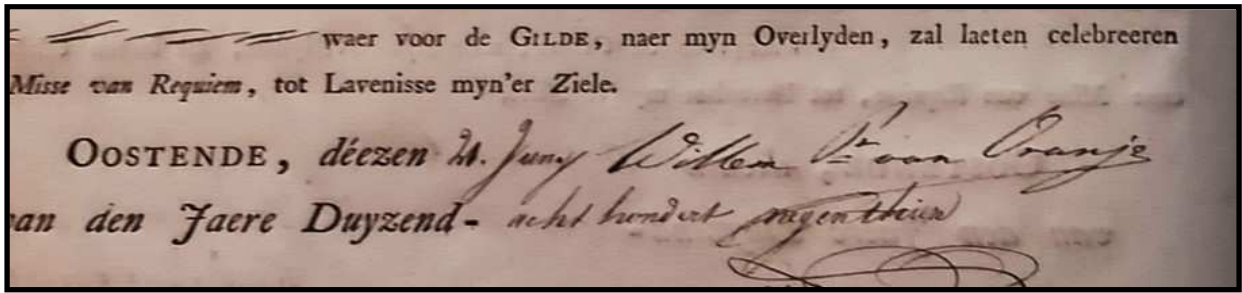 waer voor de GILDE, naer myn Overlyden, zal laeten celebreeren
Misse van Requiem, tot Lavenisse myn'er Ziele.
OOSTENDE, déezen 21. Juny Willem Pr van Oranje
van den Jaere Duyzend- acht hondert negenthien